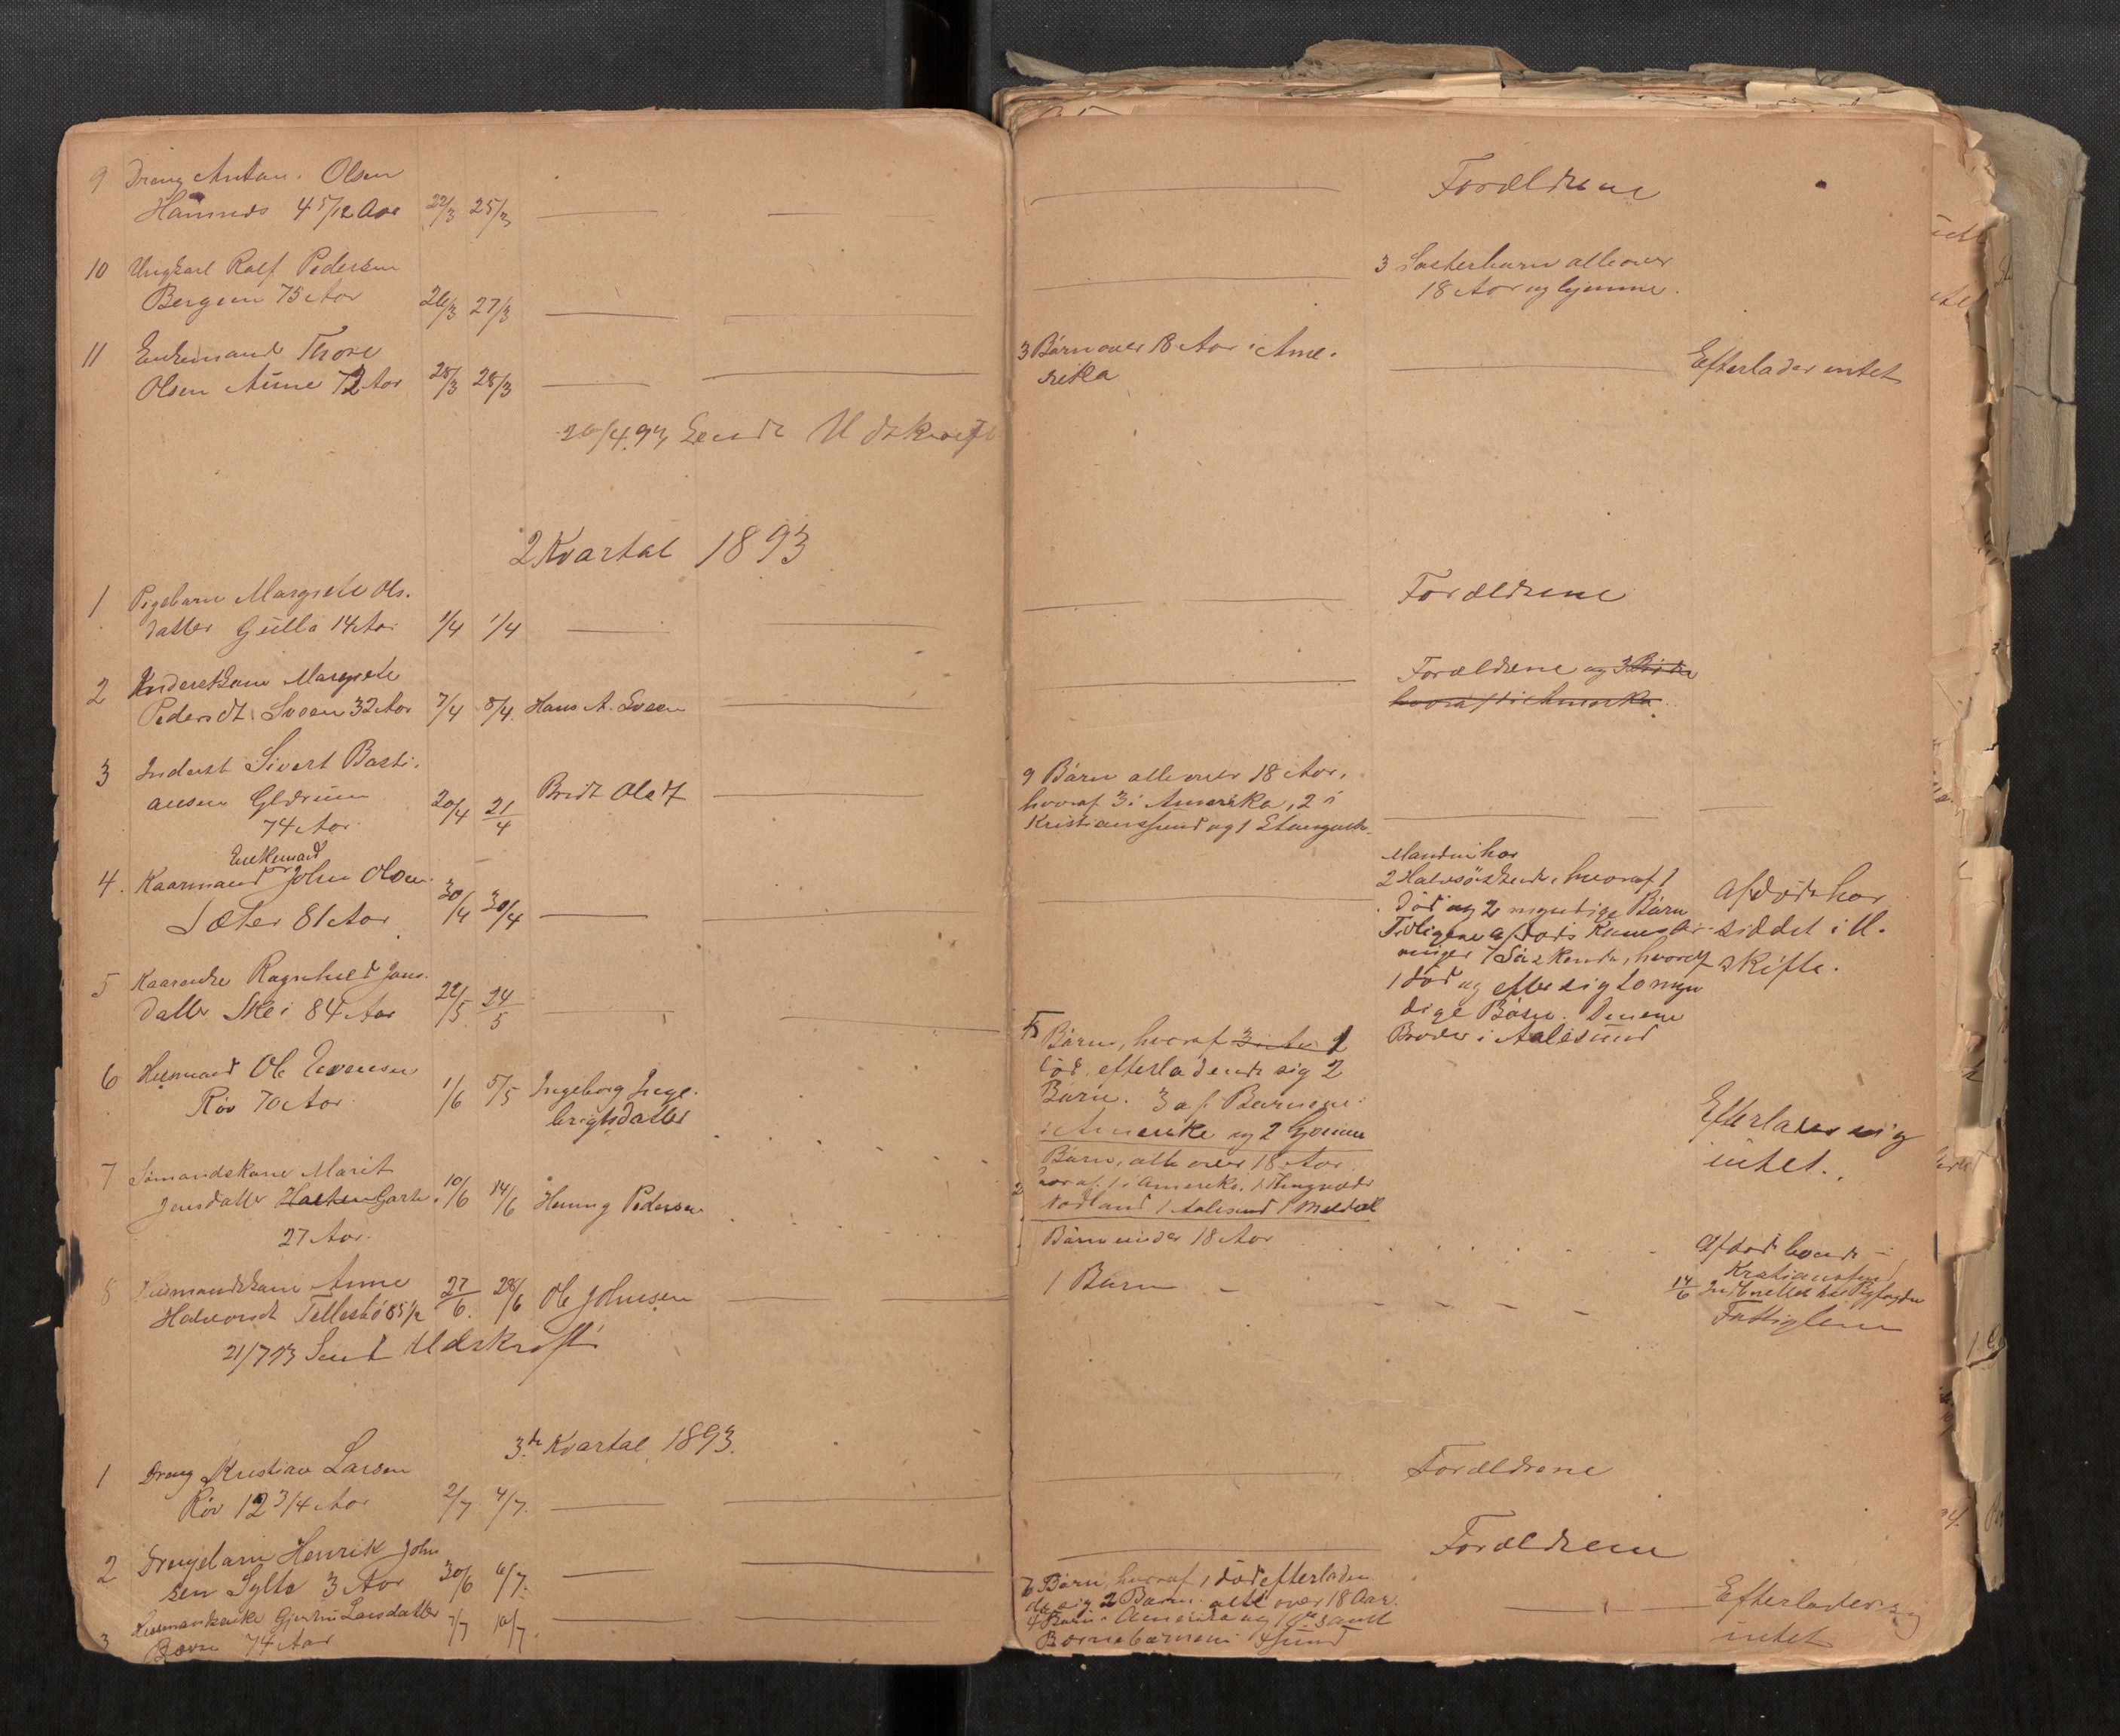 9 Dreng Anton Olsen
Hamnes 4 5/12 Aar 22/3 25/3
Forældrene
10 Ungkarl Rolf Pedersen
Bergem 75 Aar 26/3 27/3
3 Søsterbørn alle over
18 Aar og hjemme.
11 Enkemand Thore
Olsen Aune 72 Aar 25/3 28/3
3 Børn over 18 Aar i Ame-
rika
Efterlader intet
20/4 93 Sendt Udskrift
2 Kvartal 1893
1 Pigebarn Margrete Ols.
datter Gulla 14 Aar 1/4 1/4
Forældrene
2 Inderstkone Margrete
Pedersdt Sveen 32 Aar 7/4 8/4 Hans A. Sveen
Forældrene og 3
3 Inderst Sivert Basti.
ansen Glærum
74 Aar 20/4 21/4 Brit Olsd
9 Børn alle over 18 Aar,
hvoraf 3 i Amerika, 2 i
Kristianssund og 1 Stangvik
Enkemand
4. Kaarmand John Olsen
Sæter 81 Aar 30/4 30/4
Manden har
2 Halvsøskende, hvoraf 1
død og 2 myndige Børn
Tidligere afdøds Kones Ar-
vinger 7 Søskende, hvoraf
1 død og efter sig to myn
dige Børn. Denene
Broder i Aalesund
Afdøde har
siddet i U.
skifte.
5 Kaarenke Ragnhild Jons.
datter Skei 84 Aar 22/5 24/5
5 Børn, hvoraf 1
død, efterladende sig 2
Børn. 3 af Børnene
i Amerika og 2 hjemme
6 Husmand Ole Evensen
Røv 70 Aar 1/6 5/5 Ingeborg Inge.
brigtsdatter
Børn, alle over 18 Aar
hvoraf 1 i Amerika, 1
Nordland 1 Aalesund 1 Meldal
Efterlader sig
intet.
7 Sømandskone Marit
Jensdatter Garte. 10/6 14/6 Henning Pedersen
27 Aar.
2 Børn under 18 Aar
Afdøde boede i
Kristianssund
14/6
8 Husmandskone Anne
Halvorsdt Tellesbø 85 1/2 27/6. 28/6 Ole Johnsen
1 Barn
Fattiglem
21/7 93 Sendt Udskrift
3.de Kvartal 1893.
1 Dreng Kristian Larsen
Røv 12 3/4 Aar 2/7 4/7.
Forældrene
2 Drengebarn Henrik John
sen Sylte 3 Aar 30/6 6/7.
Forældrene
3 Husmandsenke Gjertru Larsdatter
Bøvre 74 Aar 7/7 10/7.
7 Børn, hvoraf 1 død efterladen
de sig 2 Børn. alle over 18 Aar.
4 Børn i Amerika og 1 samt
Børnebørnene i Xsund
Efterlader sig
intet